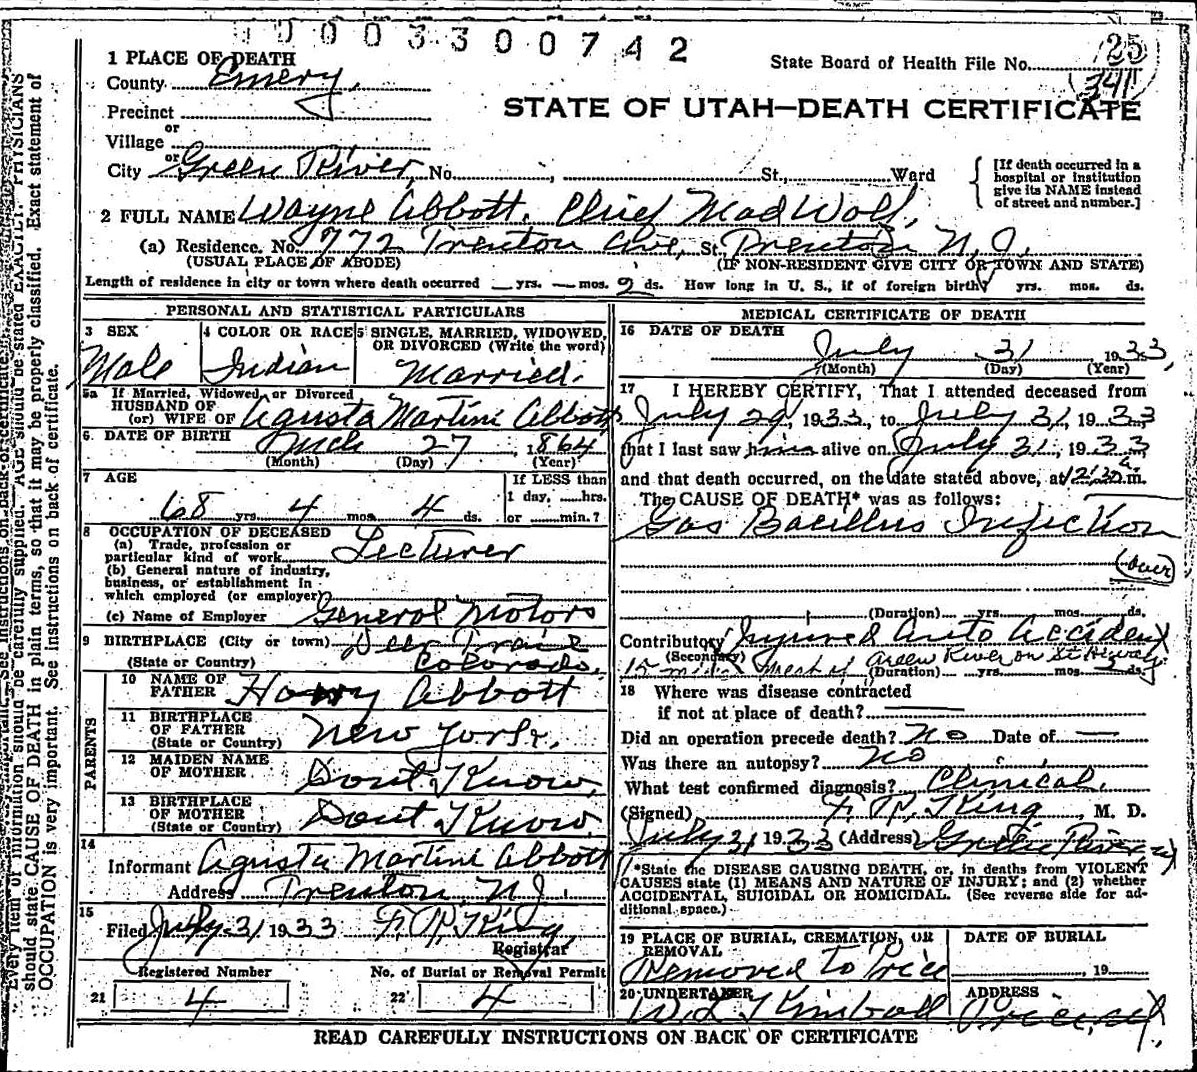 0003300742
25
State Board of Health File No.
341
1 PLACE OF DEATH
County Emery
Precinct
or
Village
or
City Green River, No. , St., Ward
STATE OF UTAH—DEATH CERTIFICATE
[If death occurred in a
hospital or institution
give its NAME instead
of street and number.]
2 FULL NAME Wayne Abbott. Chief Mad Wolf,
(a) Residence. No. 772 Trenton Ave, St. Trenton N.J.
(USUAL PLACE OF ABODE) (IF NON-RESIDENT GIVE CITY OR TOWN AND STATE)
Length of residence in city or town where death occurred — yrs. — mos. 2 ds. How long in U. S., if of foreign birth? yrs. mos. ds.
PERSONAL AND STATISTICAL PARTICULARS
3 SEX
Male
4 COLOR OR RACE
Indian
5 SINGLE, MARRIED, WIDOWED,
OR DIVORCED (Write the word)
Married.
5a If Married, Widowed, or Divorced
HUSBAND OF
(or) WIFE OF Agusta Martini Abbott
6. DATE OF BIRTH Mch 27, 1864
(Month) (Day) (Year)
7 AGE
68 yrs. 4 mos. 4 ds.
If LESS than
1 day, hrs.
or min.?
8 OCCUPATION OF DECEASED
(a) Trade, profession or
particular kind of work Lecturer
(b) General nature of industry,
business, or establishment in
which employed (or employer)
(c) Name of Employer General Motors
9 BIRTHPLACE (City or town) Deer Trail
(State or Country) Colorado,
PARENTS
10 NAME OF
FATHER Harry Abbott
11 BIRTHPLACE
OF FATHER
(State or Country) New York.
12 MAIDEN NAME
OF MOTHER Dont Know,
13 BIRTHPLACE
OF MOTHER
(State or Country) Dont Know
14
Informant Agusta Martini Abbott
Address Trenton, N.J.
15
Filed July 31 1933 F. R. King,
Registrar
Registered Number
21 4
No. of Burial or Removal Permit
22 4
MEDICAL CERTIFICATE OF DEATH
16 DATE OF DEATH
July 31, 1933,
(Month) (Day) (Year)
17 I HEREBY CERTIFY, That I attended deceased from
July 29, 1933, to July 31, 1933
that I last saw him alive on July 31, 1933
and that death occurred, on the date stated above, at 12:30 a.m.
The CAUSE OF DEATH* was as follows:
Gas Bacillus Infection
(over)
(Duration) yrs. mos. ds.
Contributory Injured Auto Accident
(Secondary) 15 miles West of Green River on St Hiway
(Duration) yrs. mos. 2 ds.
18 Where was disease contracted
if not at place of death? —
Did an operation precede death? No Date of —
Was there an autopsy? No
What test confirmed diagnosis? Clinical.
(Signed) F. R. King M. D.
July 31 1933 (Address) Green River
*State the DISEASE CAUSING DEATH, or, in deaths from VIOLENT
CAUSES state (1) MEANS AND NATURE OF INJURY; and (2) whether
ACCIDENTAL, SUICIDAL OR HOMICIDAL. (See reverse side for ad-
ditional space.)
19 PLACE OF BURIAL, CREMATION, OR
REMOVAL
Removed to Price
DATE OF BURIAL
, 19
20 UNDERTAKER
Kimball
ADDRESS
Price, Ut.
READ CAREFULLY INSTRUCTIONS ON BACK OF CERTIFICATE
Every item of information should be carefully supplied. AGE should be stated EXACTLY. PHYSICIANS
should state CAUSE OF DEATH in plain terms, so that it may be properly classified. Exact statement of
OCCUPATION is very important. See instructions on back of certificate.